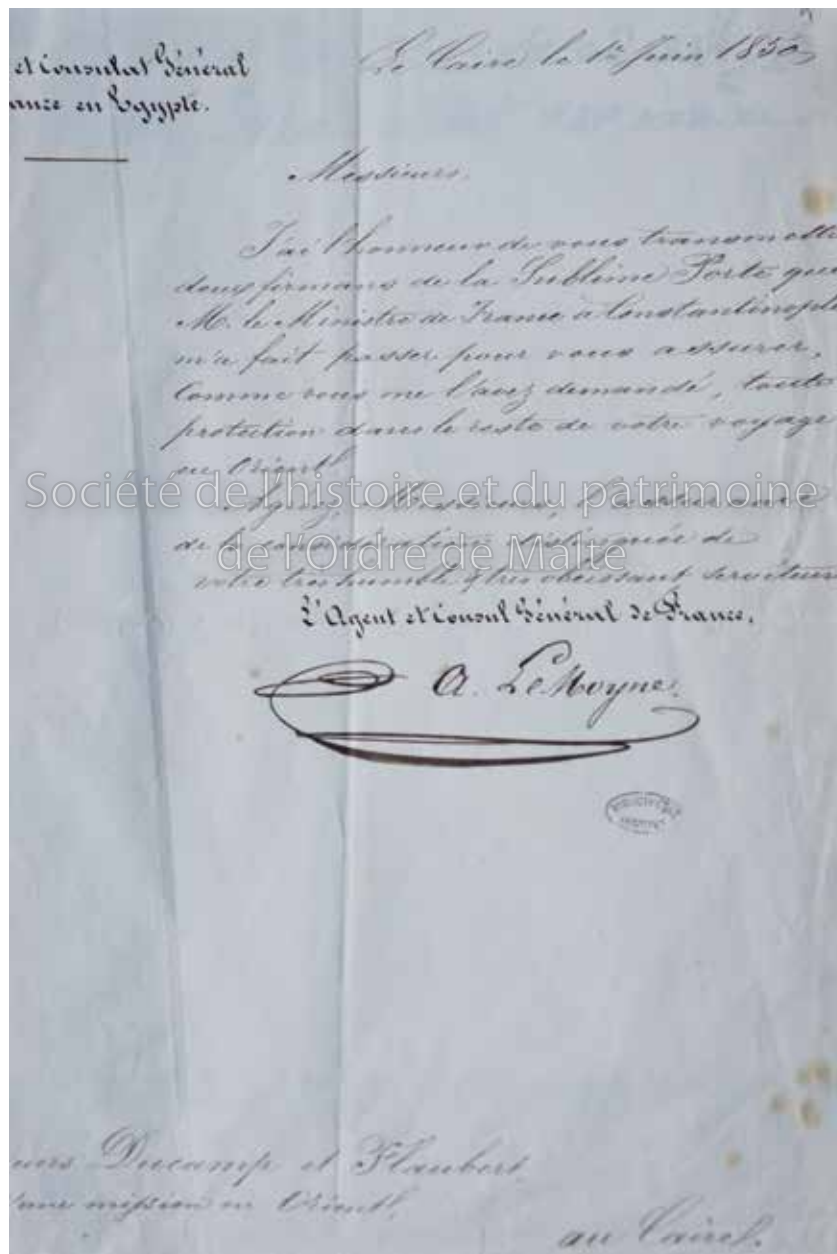 et Consulat Général
ance en Egypte.
Le Caire le 1er Juin 1850
Messieurs,
J'ai l'honneur de vous transmettre
deux firmans de la Sublime Porte que
M. le Ministre de France à Constantinople
m'a fait passer pour vous assurer,
Comme vous me l'avez demandé, toute
protection dans le reste de votre voyage
en Orient.
Agréez, Messieurs, l'assurance
de la considération distinguée de
votre très humble & très obéissant serviteur
L'Agent et Consul Général de France,
A. LeMoyne.
Société de l'histoire et du patrimoine
de l'Ordre de Malte
ieurs Ducamp et Flaubert
d'une mission en Orient.
au Caire.